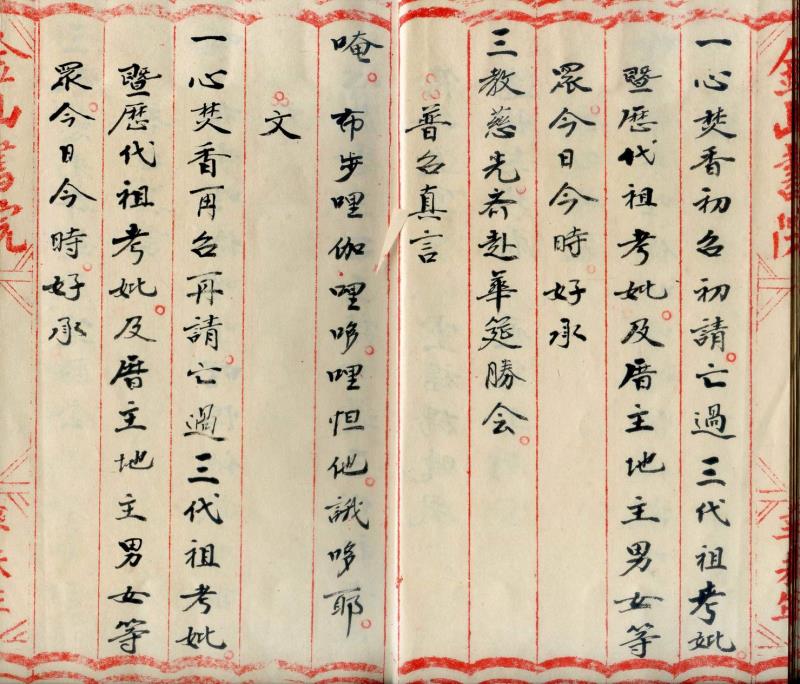 一心焚香初召初請。亡過三代祖考妣。
暨歷代祖考妣。及厝主地主男女等
眾。今日今時好承
三教慈光齊赴華筵勝会。
普召真言
唵。布步哩伽哩哆。哩怛他。誐哆耶。
文
一心焚香再召再請。亡過三代祖考妣。
暨歷代祖考妣。及厝主地主男女等
眾。今日今時。好承
金山書院